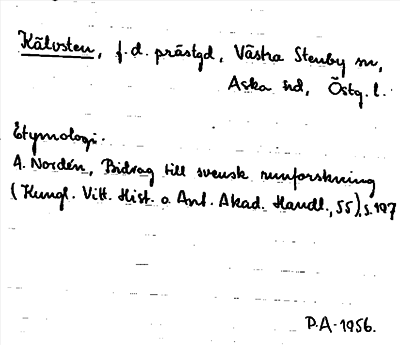 Kälvsten, f.d. prästgd, Västra Stenby sn,
Aska hd, Östg. l.
Etymologi.
A. Nordén, Bidrag till svensk runforskning
(Kungl. Vitt. Hist. o. Ant. Akad. Handl., 55), s. 197
P.A-1956.